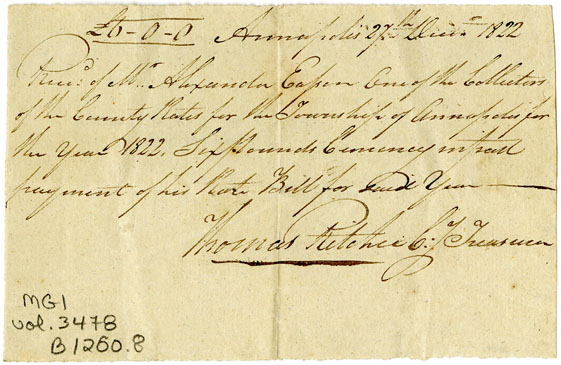 £6-0-0 Annapolis 27th Decr 1822
Recd. of Mr. Alexander Easson One of the Collectors
of the County Rates for the Township of Annapolis for
the Year 1822. Six Pounds Currency in part
payment of his Rate Bill for said Year
Thomas Ritchie Cy Treasurer
MG1
vol. 3478
B1260.8